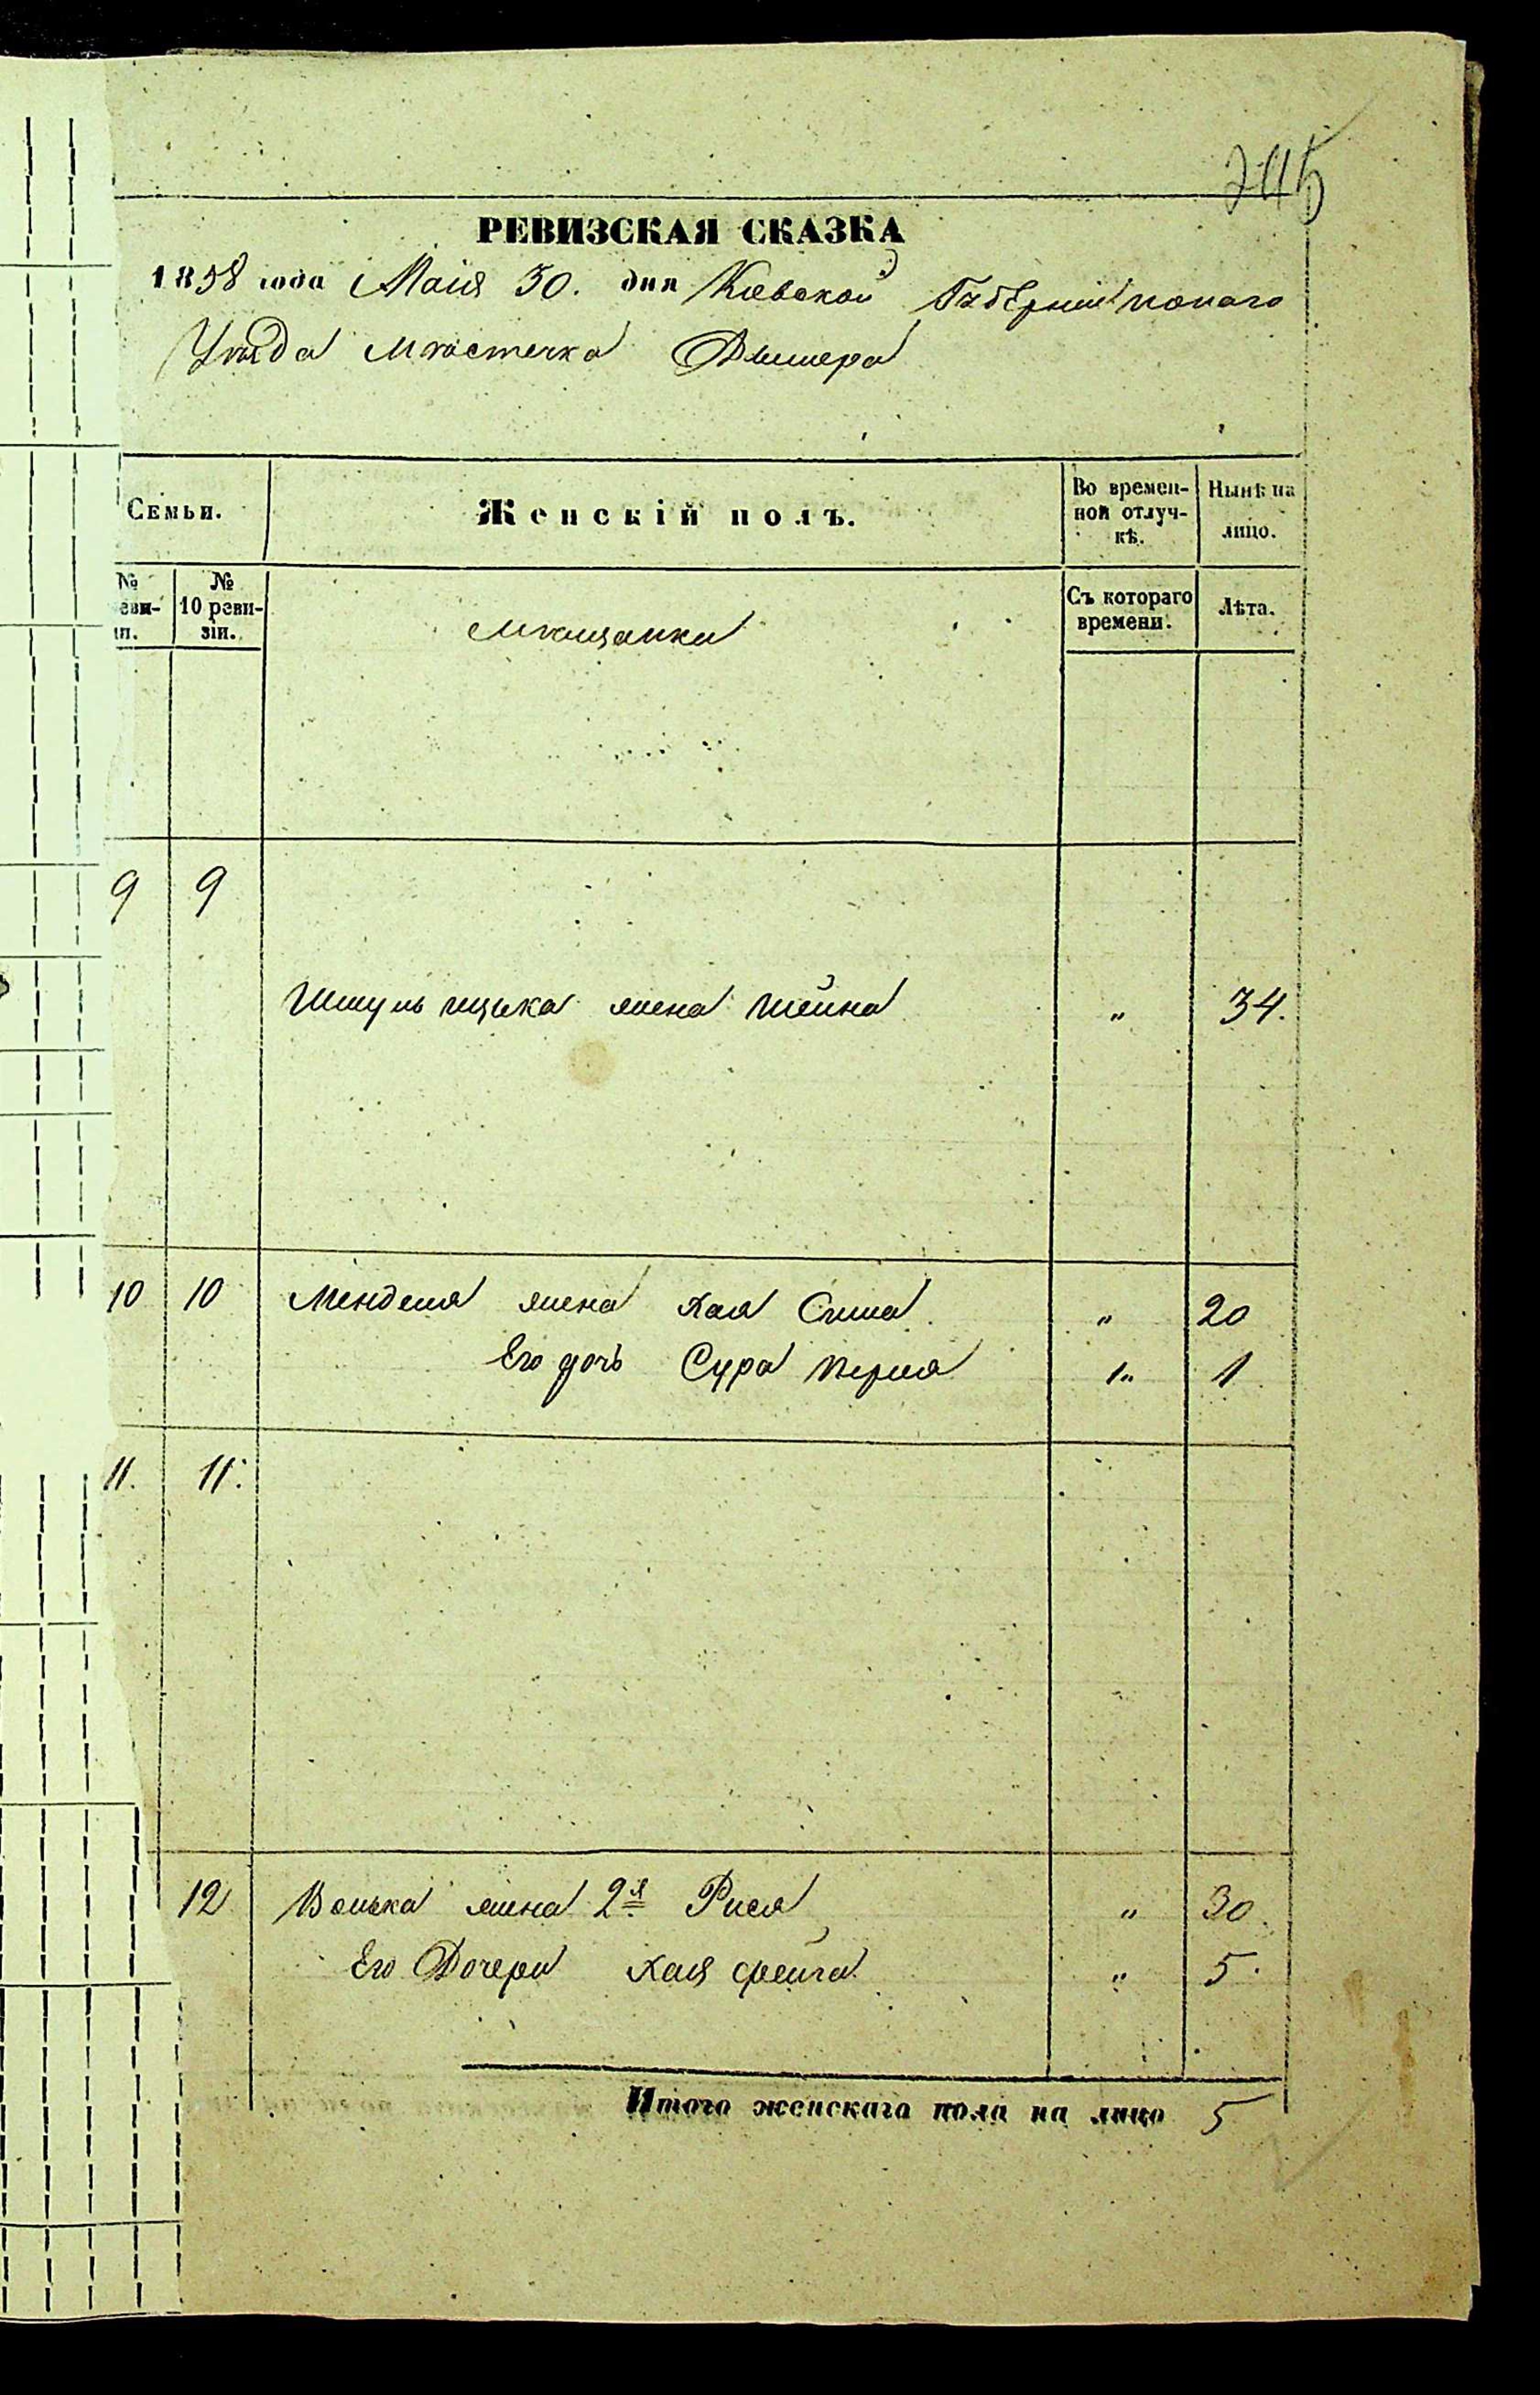 745
РЕВИЗСКАЯ СКАЗКА
1858 года Маія 30. дня Кіевской Губерніи тогоже
Уѣзда мѣстечка Дымера
Семьи.
Женскій полъ.
Во времен-
ной отлуч-
кѣ.
Нынѣ на
лицо.
№
еви-
іи.
№
10 реви-
зіи.
Мѣщанки
Съ котораго
времени.
Лѣта.
9 9
Шмуль Ицька жена Шейна " 34.
10 10 Менделя жена Хая Сима " 20
Его дочь Сура Перля " 1
11. 11.
12 Волька жена 2я Рися " 30
Его Дочери Хая Фейга " 5
Итого женскаго пола на лицо 5